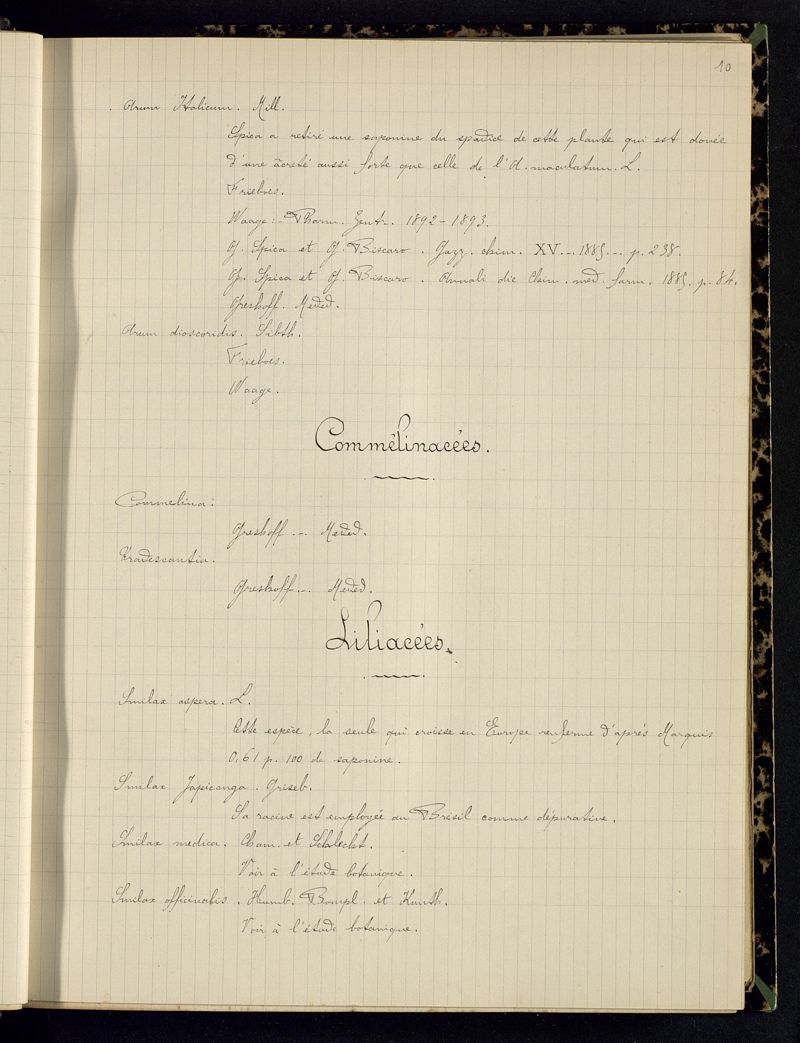 10
Arum Italicum. Mill.
Spica a retiré une saponine du spadice de cette plante qui est douée
d'une âcreté aussi forte que celle de l'A. maculatum. L.
Frieboes.
Waage:- Pharm. Zentr. 1892-1893.
G. Spica et G. Biscaro. Gazz. chim. XV.-. 1885.-. p. 238.
G. Spica et G. Biscaro. Annali die Chim. med. farm. 1885. p. 84.
Greshoff. Meded.
Arum dioscoridis. Sibth.
Frieboes.
Waage.
Commélinacées.
Commelina:
Greshoff.-. Meded.
Tradescantia.
Greshoff.-. Meded.
Liliacées.
Smilax aspera. L.
Cette espèce, la seule qui croisse en Europe renferme d'après Marquis
0,61 p. 100 de saponine.
Smilax Japicanga. Griseb.
Sa racine est employée au Brésil comme dépurative.
Smilax medica. Cham. et Schlecht.
Voir à l'étude botanique.
Smilax officinalis. Humb. Bompl. et Kunth.
Voir à l'étude botanique.